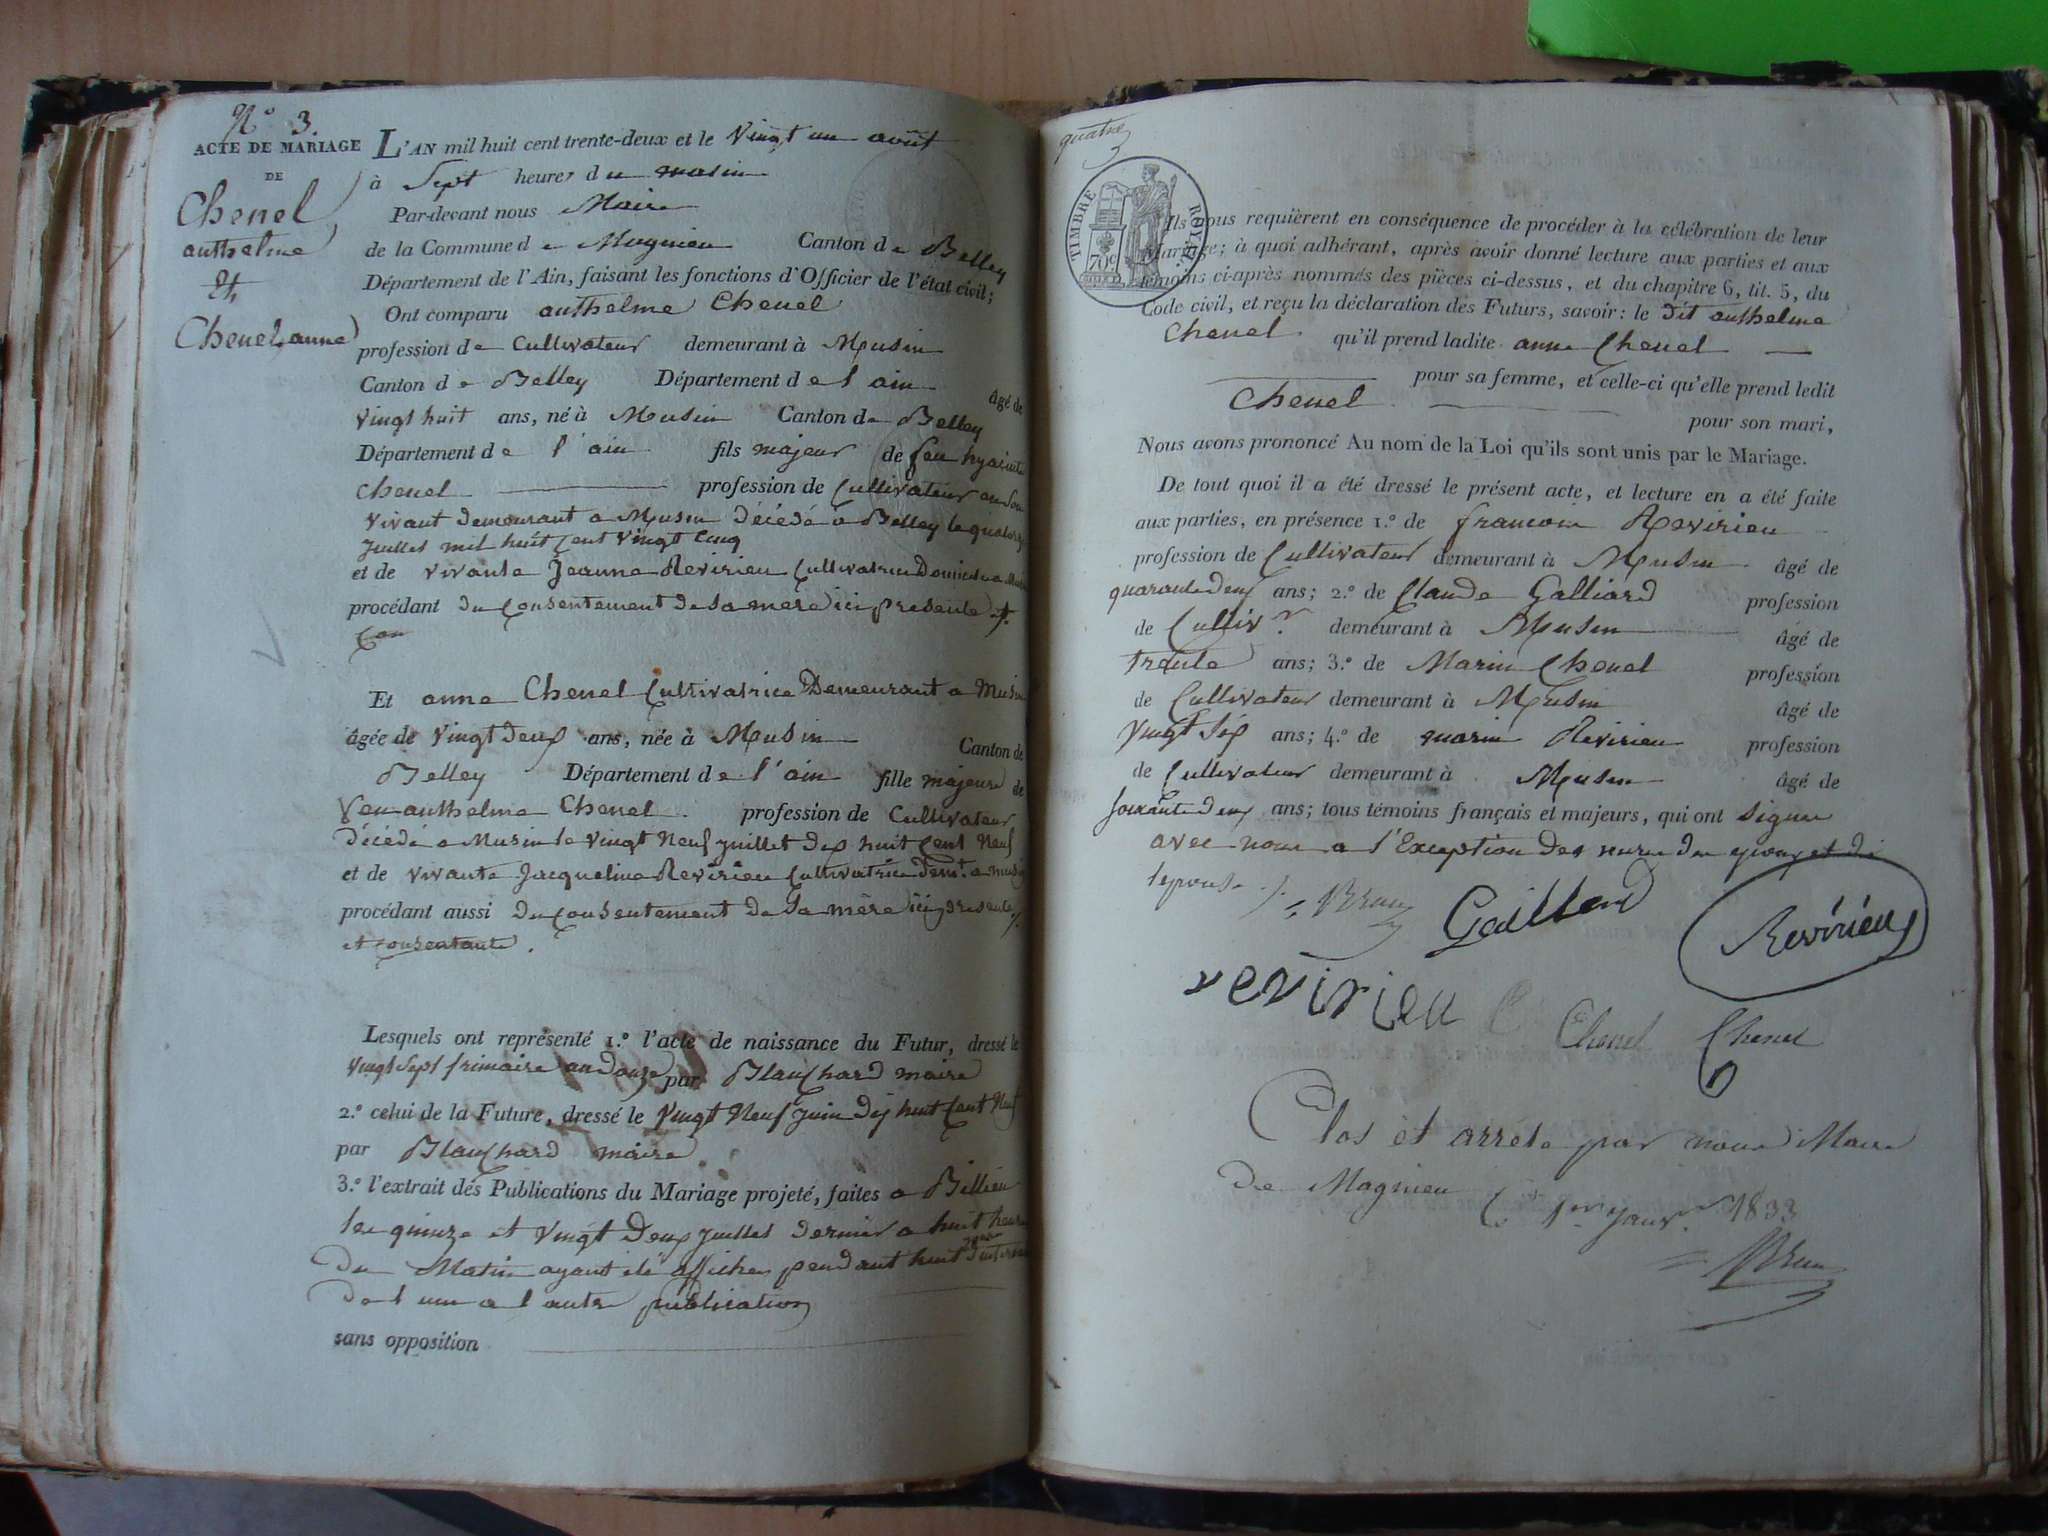 N° 3.
ACTE DE MARIAGE
DE
Chenel
anthelme
Et
Chenel anne
L'AN mil huit cent trente-deux et le Vingt un août
à Sept heures du matin
Par-devant nous Maire
de la Commune de Magnieu Canton de Belley
Département de l'Ain, faisant les fonctions d'Officier de l'état civil;
Ont comparu anthelme Chenel
profession de Cultivateur demeurant à Musin
Canton de Belley Département de l'ain âgé de
vingt huit ans, né à Musin Canton de Belley
Département de l'ain fils majeur de feu hyacinte
Chenel profession de Cultivateur en son
vivant demeurant a Musin Décédé a Belley le quatorze
Juillet mil huit Cent vingt Cinq
et de vivante Jeanne Revirieu Cultivatrice
procédant du Consentement de Sa mere ici presente et
Con
Et anne Chenel Cultivatrice Demeurant a Musin
âgée de Vingt Deux ans, née à Musin Canton de
Belley Département de l'ain fille majeure de
feu anthelme Chenel profession de Cultivateur
Décédé a Musin le vingt Neuf juillet dix huit Cent Neuf
et de vivante Jacqueline Revirieu Cultivatrice Demt. a musin
procédant aussi du Consentement de Sa mère ici presente
et Consentante.
Lesquels ont représenté 1.º l'acte de naissance du Futur, dressé le
vingt Sept frimaire an Douze par Blanchard maire
2.º celui de la Future, dressé le Vingt Neuf Juin dix huit Cent Neuf
par Blanchard maire
3.º l'extrait des Publications du Mariage projeté, faites a Billieu
les quinze et vingt Deux Juillet dernier a huit heures
du Matin ayant été affiches pendant huit jours
De l'une a l'autre publication
sans opposition
quatre
TIMBRE ROYAL
70c
Ils nous requièrent en conséquence de procéder à la célébration de leur
Mariage; à quoi adhérant, après avoir donné lecture aux parties et aux
témoins ci-après nommés des pièces ci-dessus, et du chapitre 6, tit. 5, du
Code civil, et reçu la déclaration des Futurs, savoir: le dit anthelme
Chenel qu'il prend ladite anne Chenel
pour sa femme, et celle-ci qu'elle prend ledit
Chenel
pour son mari,
Nous avons prononcé Au nom de la Loi qu'ils sont unis par le Mariage.
De tout quoi il a été dressé le présent acte, et lecture en a été faite
aux parties, en présence 1.º de francois Revirieu
profession de Cultivateur demeurant à Musin âgé de
quarante deux ans; 2.º de Claude Galliard profession
de Cultivr demeurant à Musin âgé de
trente ans; 3.º de Marin Chenel profession
de Cultivateur demeurant à Musin âgé de
Vingt Six ans; 4.º de marin Revirieu profession
de Cultivateur demeurant à Musin âgé de
soixante deux ans; tous témoins français et majeurs, qui ont Signe
avec nous a l'Exception des meres des epoux et de
lepouse
Brun
Gaillard
Revirieu
revirieu
Chenel Chenel
Clos et arrete par nous Maire
De Magnieu le 1er Janvr 1833
Brun